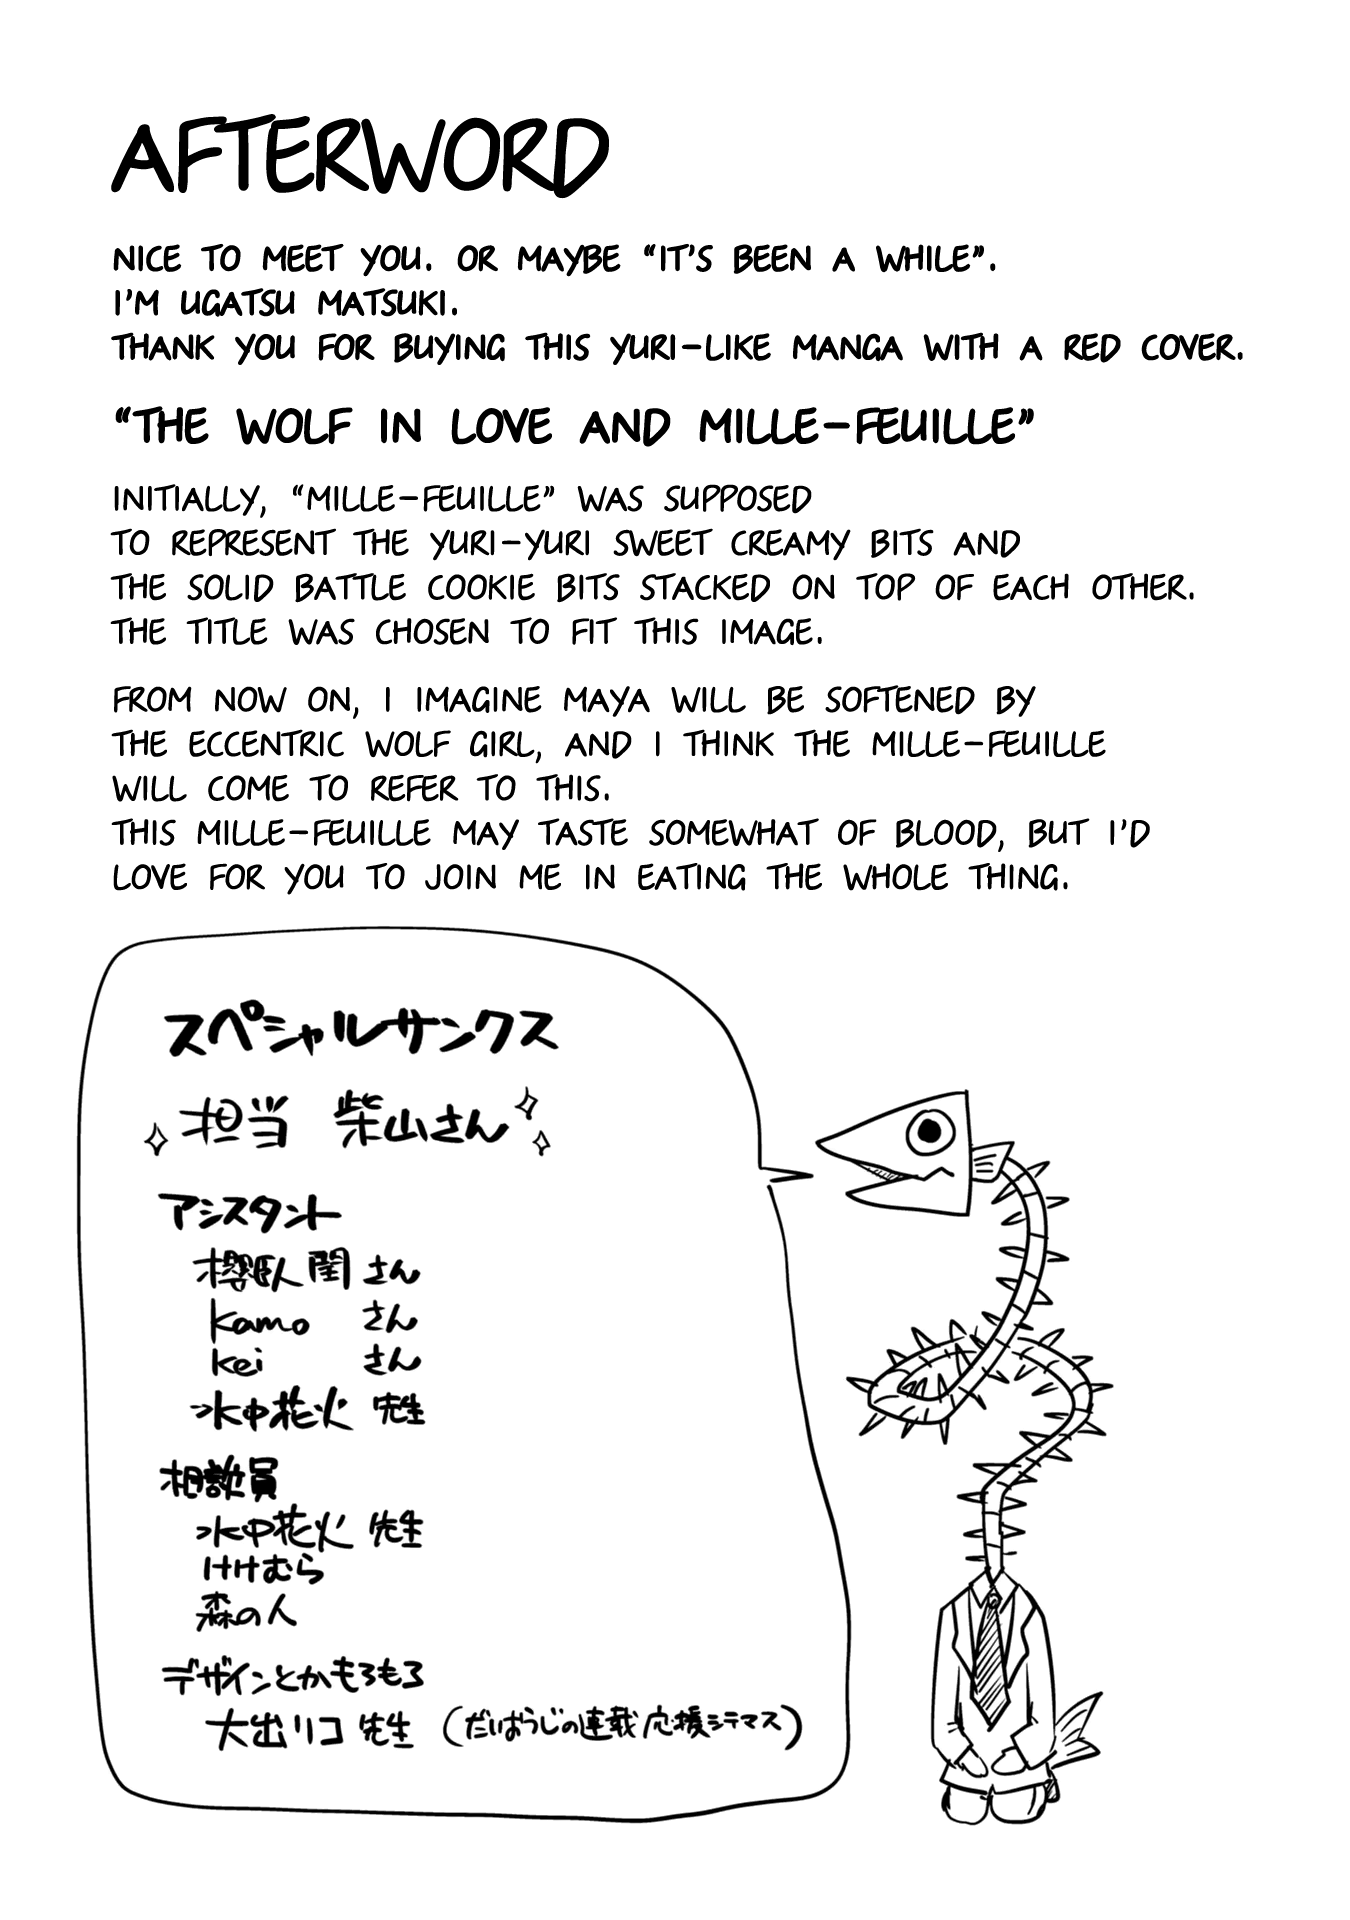 AFTERWORD
NICE TO MEET YOU. OR MAYBE “IT’S BEEN A WHILE”.
I’M UGATSU MATSUKI.
THANK YOU FOR BUYING THIS YURI-LIKE MANGA WITH A RED COVER.
“THE WOLF IN LOVE AND MILLE-FEUILLE”
INITIALLY, “MILLE-FEUILLE” WAS SUPPOSED
TO REPRESENT THE YURI-YURI SWEET CREAMY BITS AND
THE SOLID BATTLE COOKIE BITS STACKED ON TOP OF EACH OTHER.
THE TITLE WAS CHOSEN TO FIT THIS IMAGE.
FROM NOW ON, I IMAGINE MAYA WILL BE SOFTENED BY
THE ECCENTRIC WOLF GIRL, AND I THINK THE MILLE-FEUILLE
WILL COME TO REFER TO THIS.
THIS MILLE-FEUILLE MAY TASTE SOMEWHAT OF BLOOD, BUT I’D
LOVE FOR YOU TO JOIN ME IN EATING THE WHOLE THING.
スペシャルサンクス
担当 柴山さん
アシスタント
櫻臥閏さん
kamo さん
kei さん
水中花火 先生
相談員
水中花火 先生
けけむら
森の人
デザインとかもろもろ
大出リコ 先生 (だいおうじの連載応援シテマス)